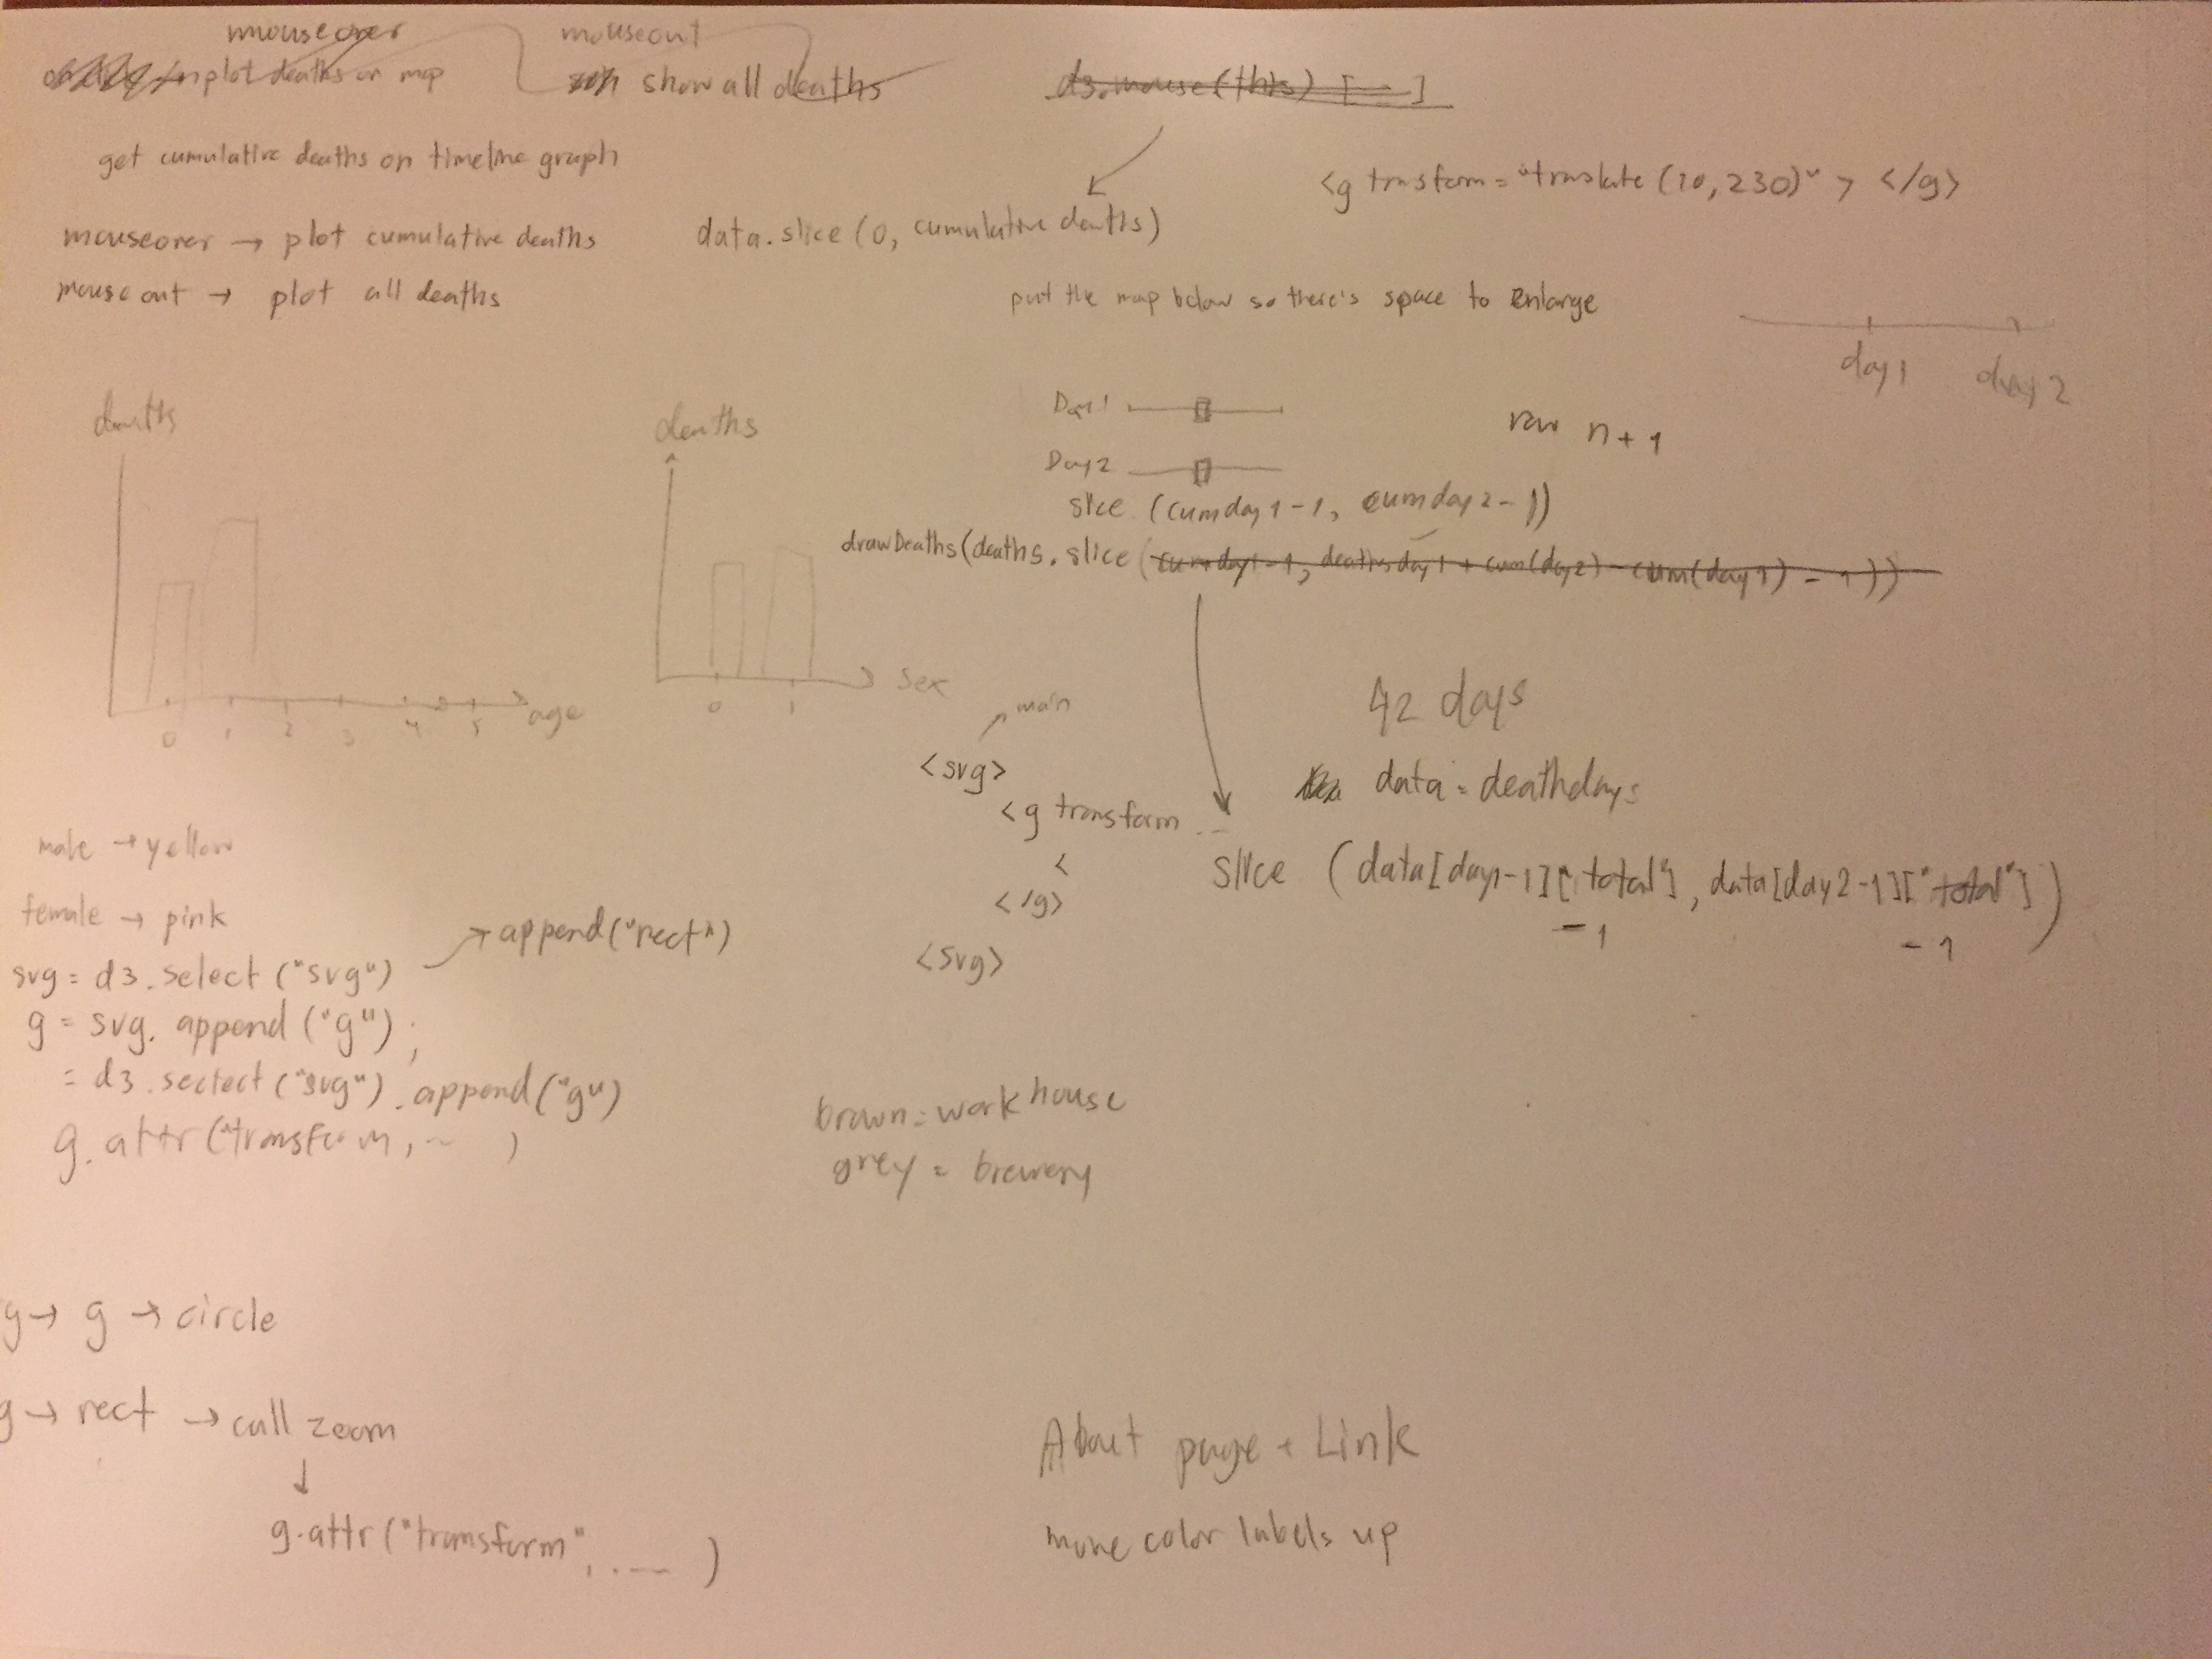 mouseover
plot deaths on map
mouseout
show all deaths
d3.mouse(this) [ -- ]
get cumulative deaths on timeline graph
<g transform = "translate (10,230)" > </g>
mouseover → plot cumulative deaths
data.slice (0, cumulative deaths)
mouseout → plot all deaths
put the map below so there's space to enlarge
day1 day 2
deaths
deaths
Day1
Day2
row n+1
slice (cumday1-1, cumday2-1)
drawDeaths(deaths.slice (cumday1-1, deathsday1 + cum(day2) - cum(day1) - 1))
0 1 2 3 4 5 age
0 1 sex
42 days
main
<svg>
<g transform ...
<
</g>
<svg>
data = deathdays
slice (data[day1-1]["total"], data[day2-1]["total"])
-1 -1
male → yellow
female → pink
svg = d3.select ("svg") → append("rect")
g = svg. append ("g");
= d3.sectect ("svg").append("g")
g.attr("transform, -- )
brown = workhouse
grey = brewery
g → g → circle
g → rect → call zoom
↓
g.attr("transform", .-- )
About page + Link
move color labels up